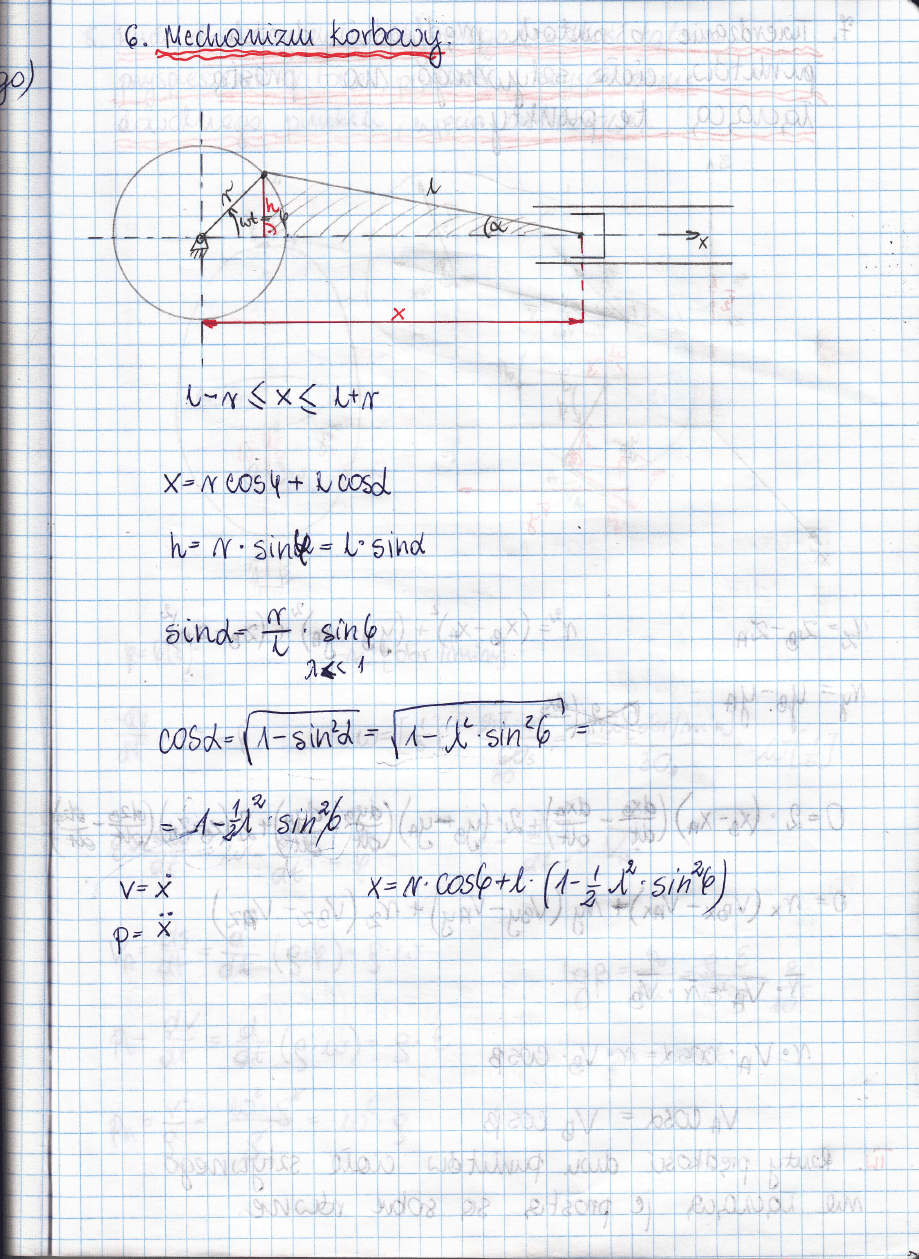 6. Mechanizm korbowy.
go)
r
h
l
ωt = φ
α
x
x
l-r ≤ x ≤ l+r
x = r cosφ + l cosα
h = r · sinφ = l · sinα
sinα = r/l · sinφ
λ << 1
cosα = √(1-sin²α) = √(1-λ² · sin²φ) =
= 1-½λ² · sin²φ
v = ẋ x = r · cosφ + l · (1-½ λ² · sin²φ)
p = ẍ